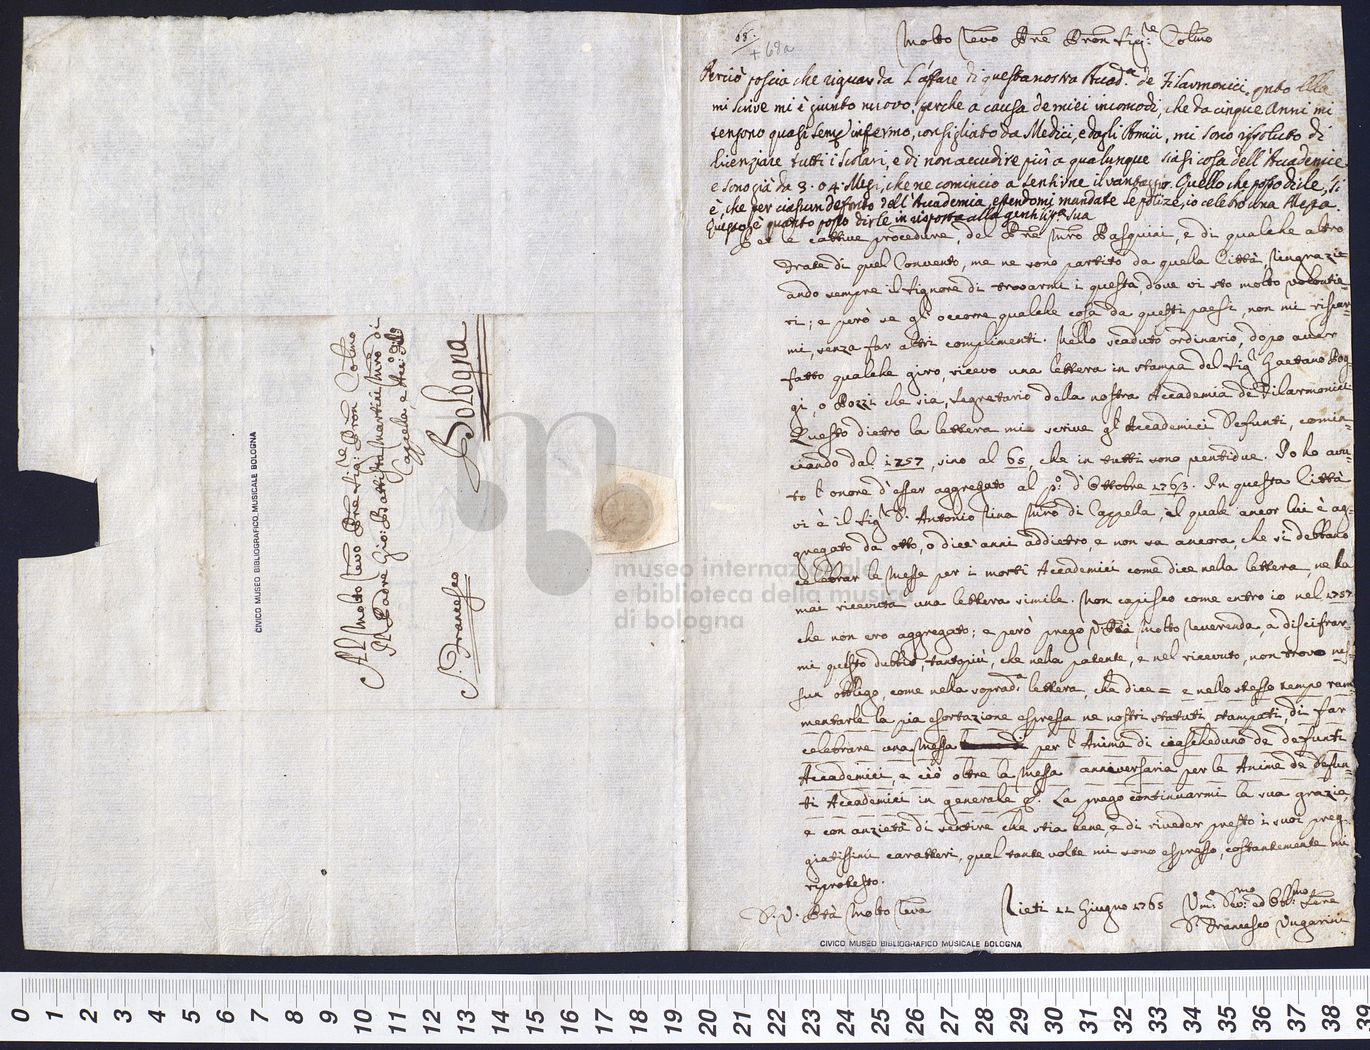 Al Molto Revdo Pre Sig.re Pron Colmo
Il Padre Gio: Battista Martini Mro di
Cappella, e Acc:co
S. Francesco Bologna
CIVICO MUSEO BIBLIOGRAFICO MUSICALE BOLOGNA
museo internazionale
e biblioteca della musica
di bologna
68.
+ 68a
Molto Revdo Pre Pron Sig.re Colmo
Perciò poscia che riguarda l'affare di questa nostra Accad.a de Filarmonici, Ella
mi scrive mi è giunto nuovo, perche a causa de miei incomodi, che da cinque Anni mi
tengono quasi semp infermo, consigliato da Medici, e dagli Amici, mi sono risoluto di
licenziare tutti i Scolari, e di non accudire più a qualunque siasi cosa dell'Accademie
e sono già da 3. o 4 Mesi, che ne comincio a sentirne il vantaggio. Quello che posso dirle, si
è, che per ciascun defonto dell'Accademia, essendomi mandate le polize, io celebro una Messa.
Questo è quanto posso dirle in risposta alla gentil.ma sua
Per le cattive procedure, del Pre Mro Pasquini, e di qualche altro
Frate di quel Convento, me ne sono partito da quella Città, Ringrazi-
ando sempre il Signore di trovarmi i questa, dove vi sto molto volontie-
ri; e però se gl'occorre qualche cosa da questi paesi, non mi rispar-
mi, senza far altri complimenti. Nello scaduto ordinario, dopo aver
fatto qualche giro, ricevo una lettera in stampa del Sig.re Gaetano Pog-
gi, o Pozzi che sia, Segretario della nostra Accademia de Filarmonici
Questo dietro la lettera mi scrive gl'Accademici Defunti, comin-
ciando dal 1757, sino al 65, che in tutti sono ventidue. Io ho avu-
to l'onore d'esser aggregato al p.o d'Ottobre 1763. In questa Città
vi è il Sig.r D. Antonio Mro di Cappella, il quale ancor lui è ag-
gregato da otto, o dieci anni addietro, e non sa ancora, che si debbano
celebrar le Messe per i morti Accademici come dice nella lettera, ne ha
mai ricevuta una lettera simile. Non capisco come entro io nel 1757
che non ero aggregato; e però prego V. Ptà Molto Reverenda, a discifrar-
mi questo dubbio, tanto più, che nella patente, e nel ricevuto, non trovo nes-
sun obbligo, come nella soprad.a lettera, che dice = e nello stesso tempo ram-
mentarle la pia esortazione espressa ne nostri statuti stampati, di far
celebrare una Messa per l'Anima di ciascheduno de defunti
Accademici, e ciò oltre la Messa anniversaria per le Anime de defun-
ti Accademici in generale. La prego continuarmi la sua grazia,
e con anzietà di sentire che stia bene, e di riveder presto i suoi preg-
giatissimi caratteri, qual tante volte mi sono espresso, costantemente mi
riprotesto.
D. V. Ptà Molto Revda Rieti 11 Giugno 1765 Um.o Dev.mo ed Obb.mo Serre
D. Francesco Ungarini
CIVICO MUSEO BIBLIOGRAFICO MUSICALE BOLOGNA
0 1 2 3 4 5 6 7 8 9 10 11 12 13 14 15 16 17 18 19 20 21 22 23 24 25 26 27 28 29 30 31 32 33 34 35 36 37 38 39